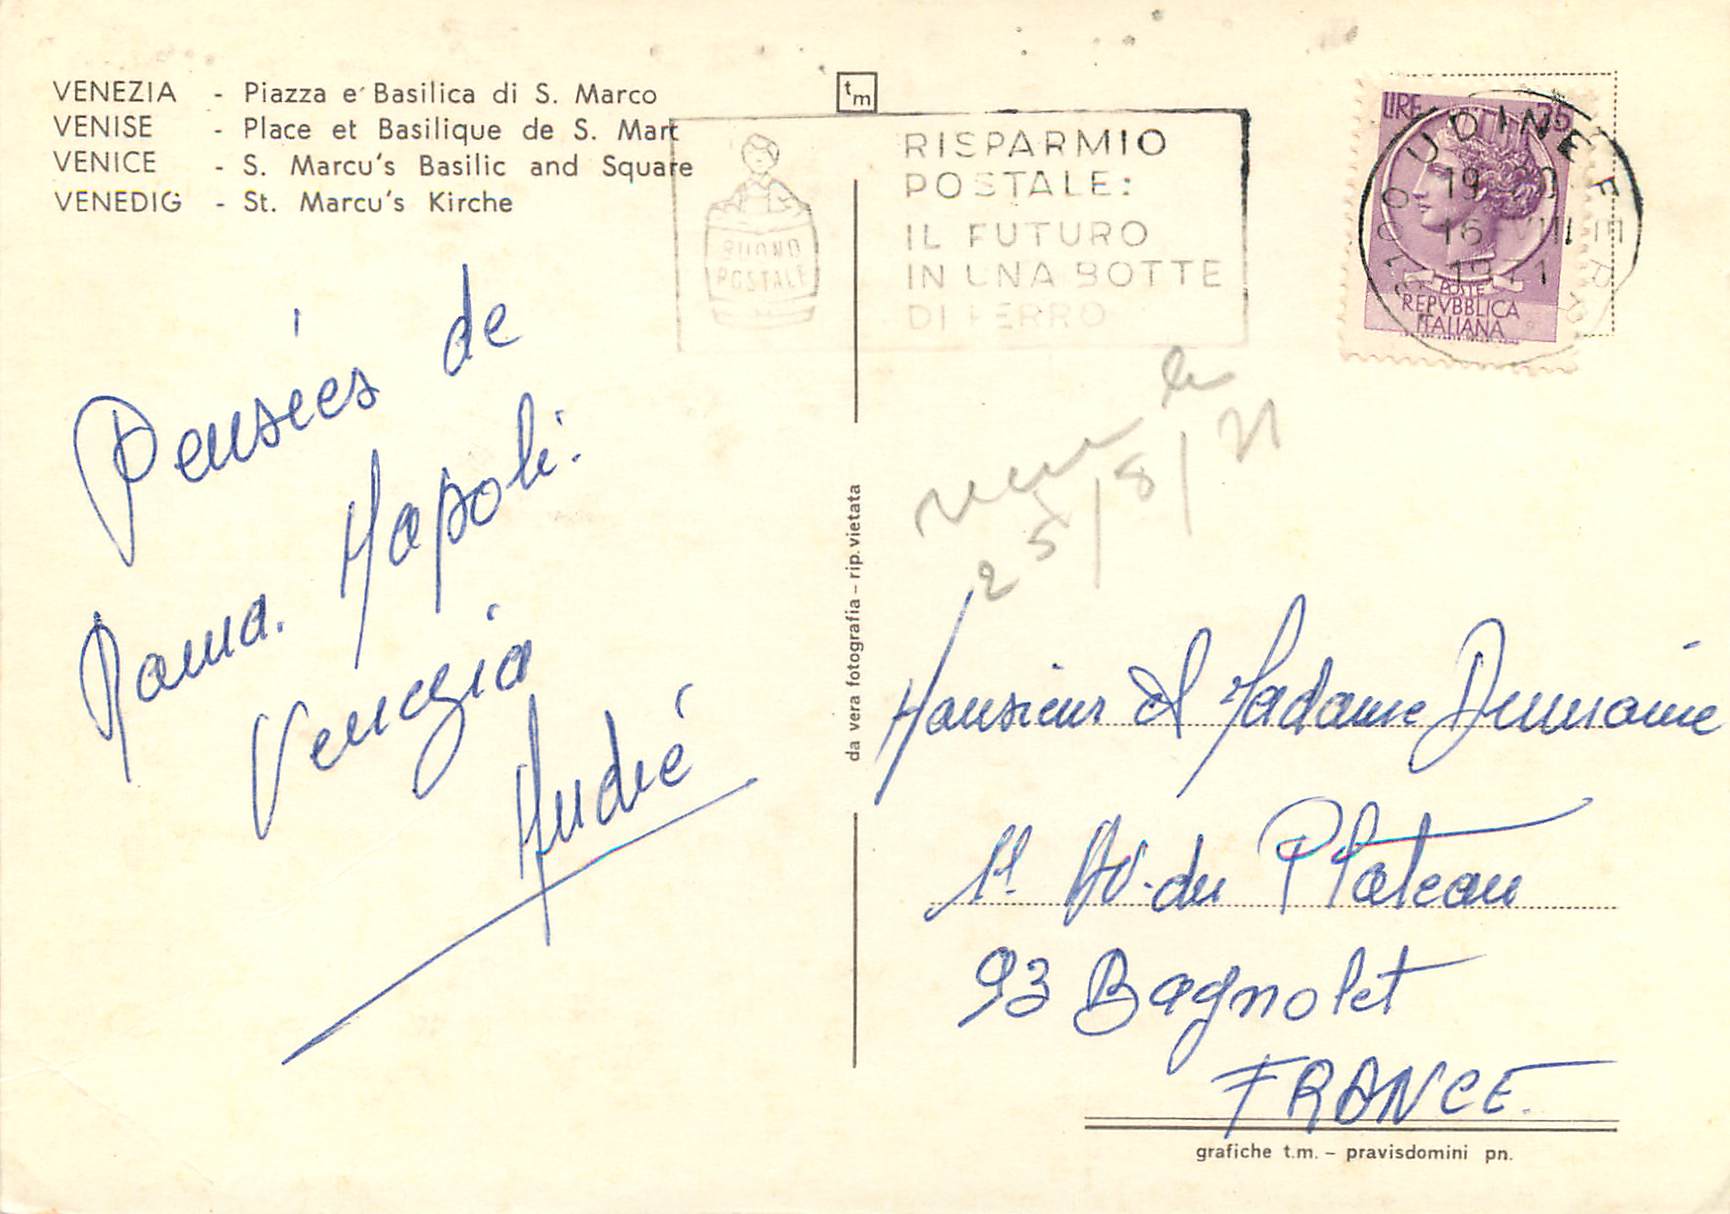 VENEZIA - Piazza e Basilica di S. Marco
VENISE - Place et Basilique de S. Mart
VENICE - S. Marcu's Basilic and Square
VENEDIG - St. Marcu's Kirche
tm
BUONO
POSTALE
RISPARMIO
POSTALE:
IL FUTURO
IN UNA BOTTE
DI FERRO
LIRE 35
POSTE
REPVBBLICA
ITALIANA
33100 UDINE FERR
19-20
16 VIII
Pensées de
Roma. Napoli.
Venezia
André
da vera fotografia - rip. vietata
le
25/8/71
Monsieur et Madame
11 Av. du Plateau
93 Bagnolet
FRANCE.
grafiche t.m. - pravisdomini pn.